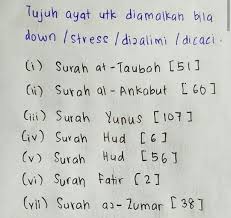 Tujuh ayat utk diamalkan bila
down / stress / dizalimi / dicaci.
(i) Surah at-Taubah [51]
(ii) Surah al-Ankabut [60]
(iii) Surah Yunus [107]
(iv) Surah Hud [6]
(v) Surah Hud [56]
(vi) Surah Fatir [2]
(vii) Surah az-Zumar [38]